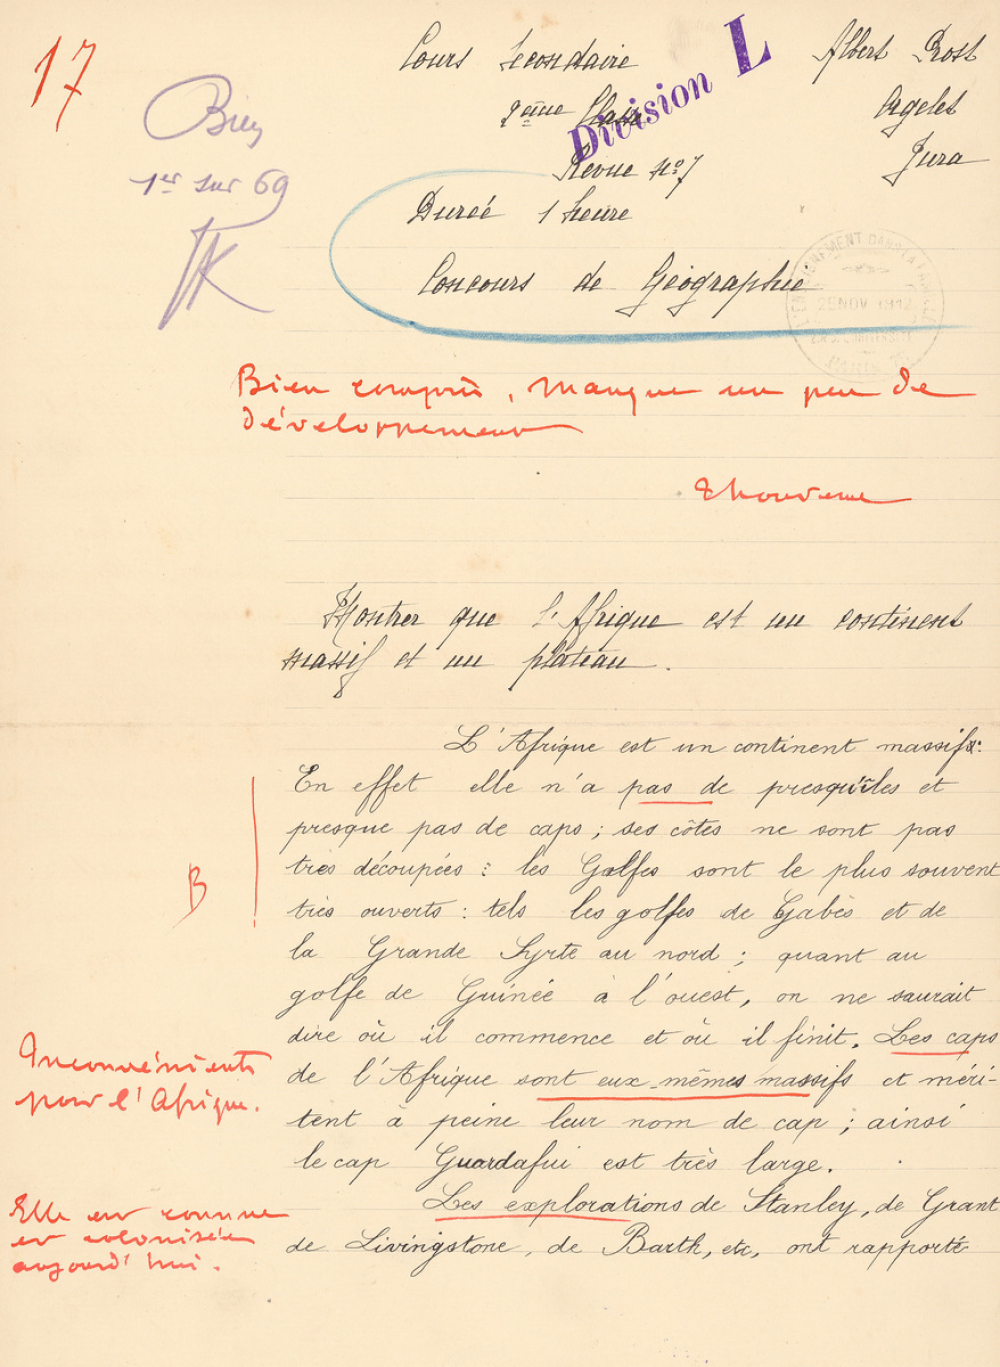 17
Bien
1er sur 69
Cours Secondaire
2ème Classe
Revue No 7
Division L
Albert Prost
Orgelet
Jura
Durée 1 heure
Concours de Géographie
25 NOV 1912
Bien compris, manque un peu de
développement
Montrer que l'Afrique est un continent
massif et un plateau.
L'Afrique est un continent massif:
En effet elle n'a pas de presqu'îles et
presque pas de caps ; ses côtes ne sont pas
très découpées : les Golfes sont le plus souvent
très ouverts : tels les golfes de Gabès et de
B
la Grande Syrte au nord ; quant au
golfe de Guinée à l'ouest, on ne saurait
dire où il commence et où il finit. Les caps
de l'Afrique sont eux-mêmes massifs et méri-
tent à peine leur nom de cap ; ainsi
le cap Guardafui est très large.
Inconvénients
pour l'Afrique.
Les explorations de Stanley, de Grant
de Livingstone, de Barth, etc, ont rapporté
Elle est connue
et colonisée
aujourd'hui.